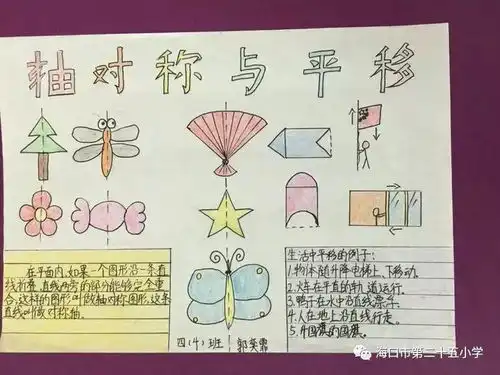 轴对称与平移
在平面内,如果一个图形沿一条直
线折叠,直线两旁的部分能够完全重
合,这样的图形叫做轴对称图形,这条
直线叫做对称轴。
生活中平移的例子:
1.物体随升降电梯上、下移动。
2.火车在平直的轨道运行。
3.鸭子在水中沿直线
4.人在地上沿直线行走。
5.的国旗。
四(4)班
海口市第二十五小学